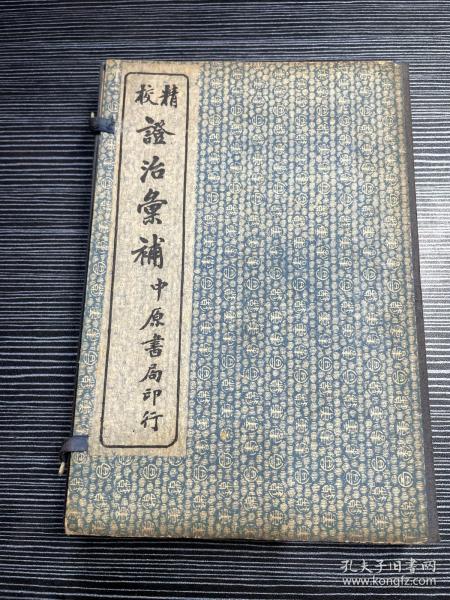 精校
證治彙補
中原書局印行
孔夫子旧书网
www.kongfz.com